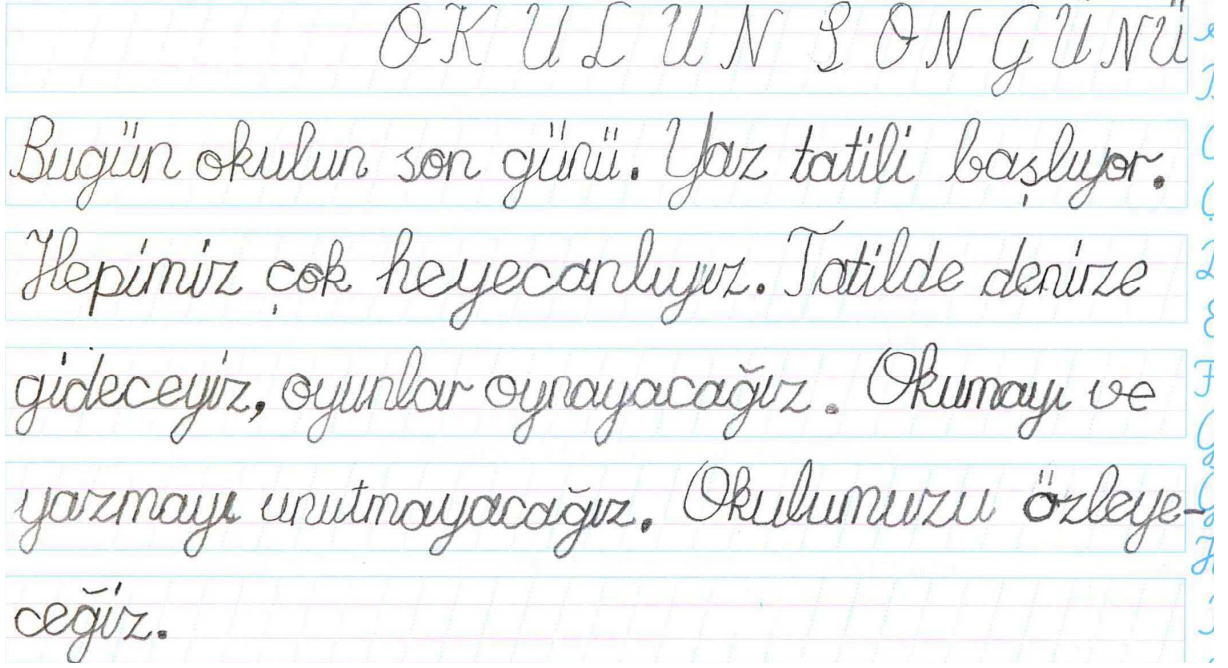 OKULUN SON GÜNÜ
Bugün okulun son günü. Yaz tatili başlıyor.
Hepimiz çok heyecanlıyız. Tatilde denize
gideceyiz, oyunlar oynayacağız. Okumayı ve
yazmayı unutmayacağız. Okulumuzu özleye-
ceğiz.